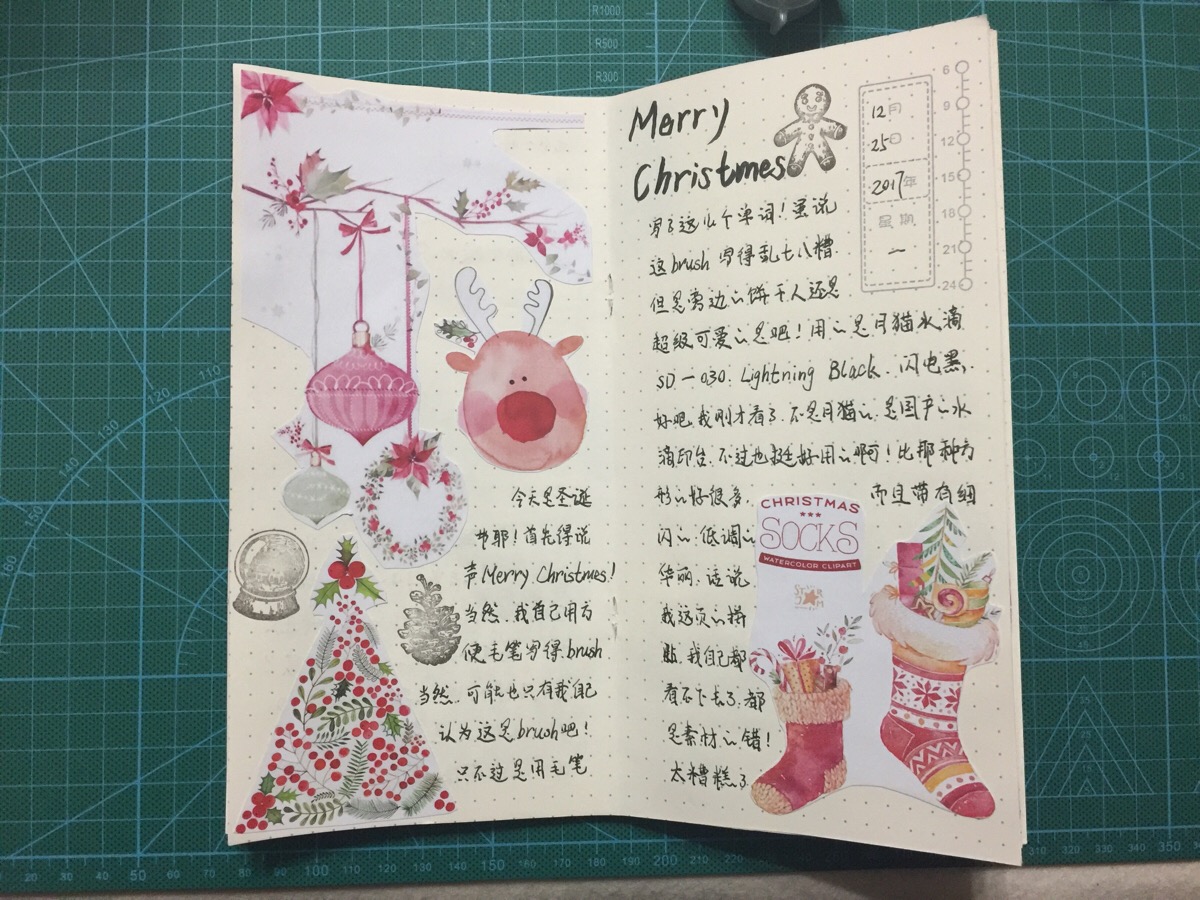 今天是圣诞
节耶！首先得说
声Merry Christmes！
当然，我自己用方
便毛笔写得brush
当然，可能也只有我自己
认为这是brush吧！
只不过是用毛笔
Merry
Christmes
写了这么个单词！虽说
这brush写得乱七八糟
但是旁边的饼干人还是
超级可爱的是吧！用的是月猫水滴
SD-030. Lightning Black. 闪电黑,
好吧,我刚才看了,不是月猫的,是国产的水
滴印台,不过也挺好用的啊！比那种方
形的好很多, 而且带有细
闪的,低调的
华丽,话说
我这页的拼
贴,我自己都
看不下去了,都
是素材的错！
太糟糕了
12月
25日
2017年
星期
一
6
9
12
15
18
21
24
CHRISTMAS
SOCKS
WATERCOLOR CLIPART
STAR
JAM
R1000
R500
R300
110
120
130
140
150
160
20 30 40 50 60 70 80 90 100 110 120 130 140 150 160 170 180
190 200 210 220
310 320 330 340 350